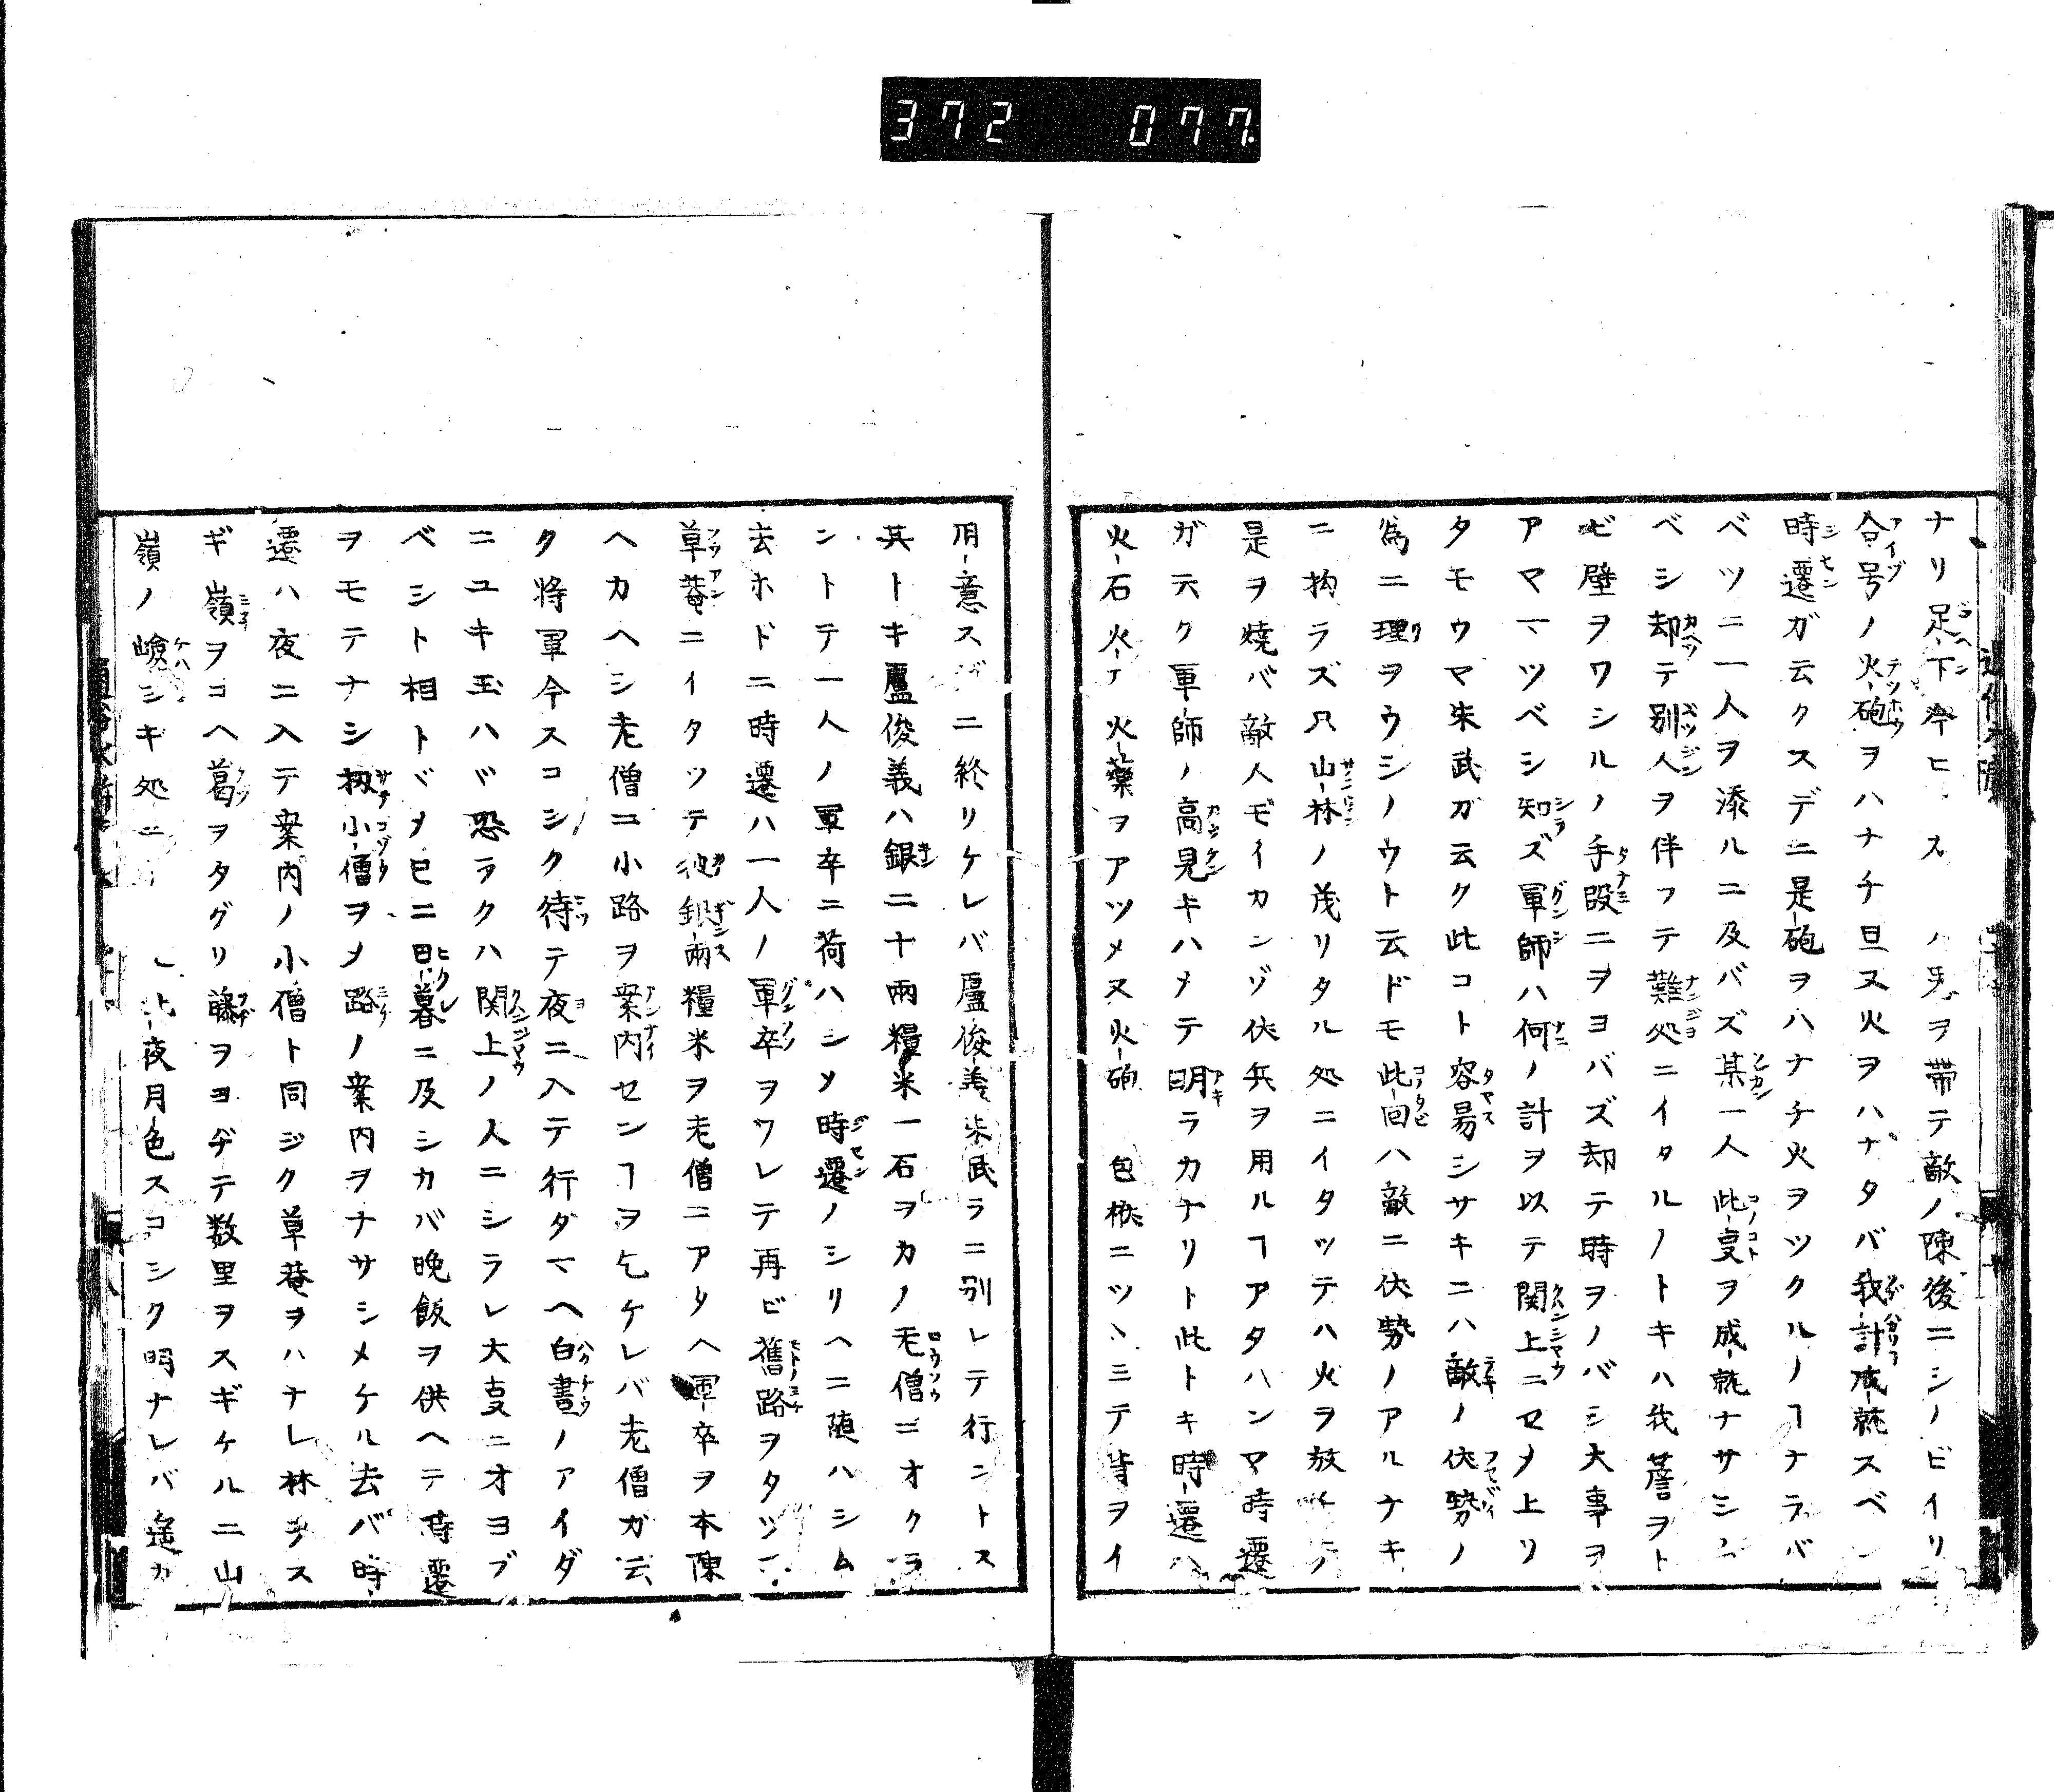 372 077.
ナリ足下今ヒ ス ハ兒ヲ帯テ敵ノ陳後ニシノビイリ
合号ノ火砲ヲハナチ旦又火ヲハナタバ我計成就スベシ
時遷ガ云クスデニ是砲ヲハナチ火ヲツクルノヿナラバ
ベツニ一人ヲ添ルニ及バズ某一人此叓ヲ成就ナサシム
ベシ却テ別人ヲ伴フテ難処ニイタルノトキハ我簷ヲト
ビ壁ヲワシルノ手段ニヲヨバズ却テ時ヲノバシ大事ヲ
アママツベシ知ズ軍師ハ何ノ計ヲ以テ関上ニセメ上リ
タモウマ朱武ガ云ク此コト容昜シサキニハ敵ノ伏勢ノ
為ニ理ヲウシノウト云ドモ此回ハ敵ニ伏勢ノアルナキ
ニ拘ラズ只山林ノ茂リタル処ニイタツテハ火ヲ放チテ
是ヲ燒バ敵人モイカンゾ伏兵ヲ用ルヿアタハンマ時遷
ガ云ク軍師ノ高見キハメテ明ラカナリト此トキ時遷ハ
火石火 火藥ヲアツメ又火砲 包 ニツヽミテ背ヲイ
用意スデニ終リケレバ盧俊義朱武ラニ別レテ行ントス
其トキ盧俊義ハ銀二十兩糧米一石ヲカノ老僧ニオクラ
ントテ一人ノ軍卒ニ荷ハシメ時遷ノシリヘニ随ハシム
去ホドニ時遷ハ一人ノ軍卒ヲツレテ再ビ舊路ヲタツ
草菴ニイタツテ彼銀兩糧米ヲ老僧ニアタヘ軍卒ヲ本陳
ヘカヘシ老僧ニ小路ヲ案内センヿヲ乞ケレバ老僧ガ云
ク将軍今スコシク待テ夜ニ入テ行タマヘ白晝ノアイダ
ニユキ玉ハバ恐ラクハ関上ノ人ニシラレ大叓ニオヨブ
ベシト相トヾメ已ニ日暮ニ及シカバ晩飯ヲ供ヘテ時遷
ヲモテナシ扨小僧ヲメ路ノ案内ヲナサシメケル去バ時
遷ハ夜ニ入テ案内ノ小僧ト同ジク草菴ヲハナレ林ヲス
ギ嶺ヲコヘ葛ヲタグリ藤ヲヨヂテ数里ヲスギケルニ山
嶺ノ嶮シキ処ニ 此夜月色スコシク明ナレバ遥カ